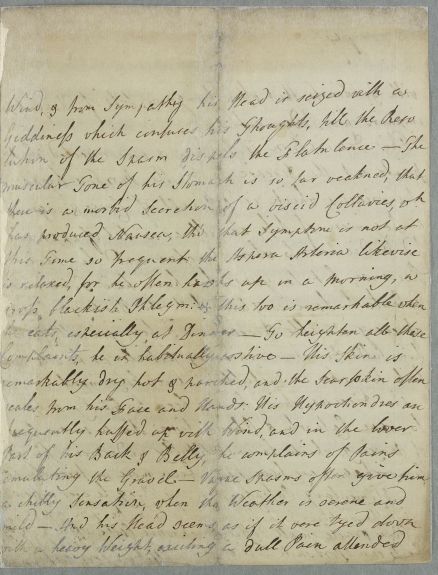 Wind, & from Sympathy his Head is seized with a
giddiness which confuses his Thoughts, till the Reso
lution of the Spasm dispels the Flatulence — The
muscular Tone of his Stomach is so far weakned, that
there is a morbid Secretion of a viscid Colluvies, wh
has produced Nausea, tho' that Symptom is not at
this Time so frequent the Aspera Arteria likewise
is relaxed, for he often hawks up in a morning, a
gross blackish Phlegm: & this too is remarkable when
he eats especially at Dinner — To heighten all these
Complaints, he is habitually costive — His Skin is
remarkably dry hot & parched, and the Scarfskin often
scales from his Face and Hands. His Hypochondres are
frequently puffed up with Wind, and in the lower
Part of his Back & Belly, he complains of Pains
emulating the Gravel — Vague Spasms often give him
a chilly Sensation, when the Weather is serene and
mild — And his Head seems, as if it were tyed down
with a heavy Weight, exciting a dull Pain attended